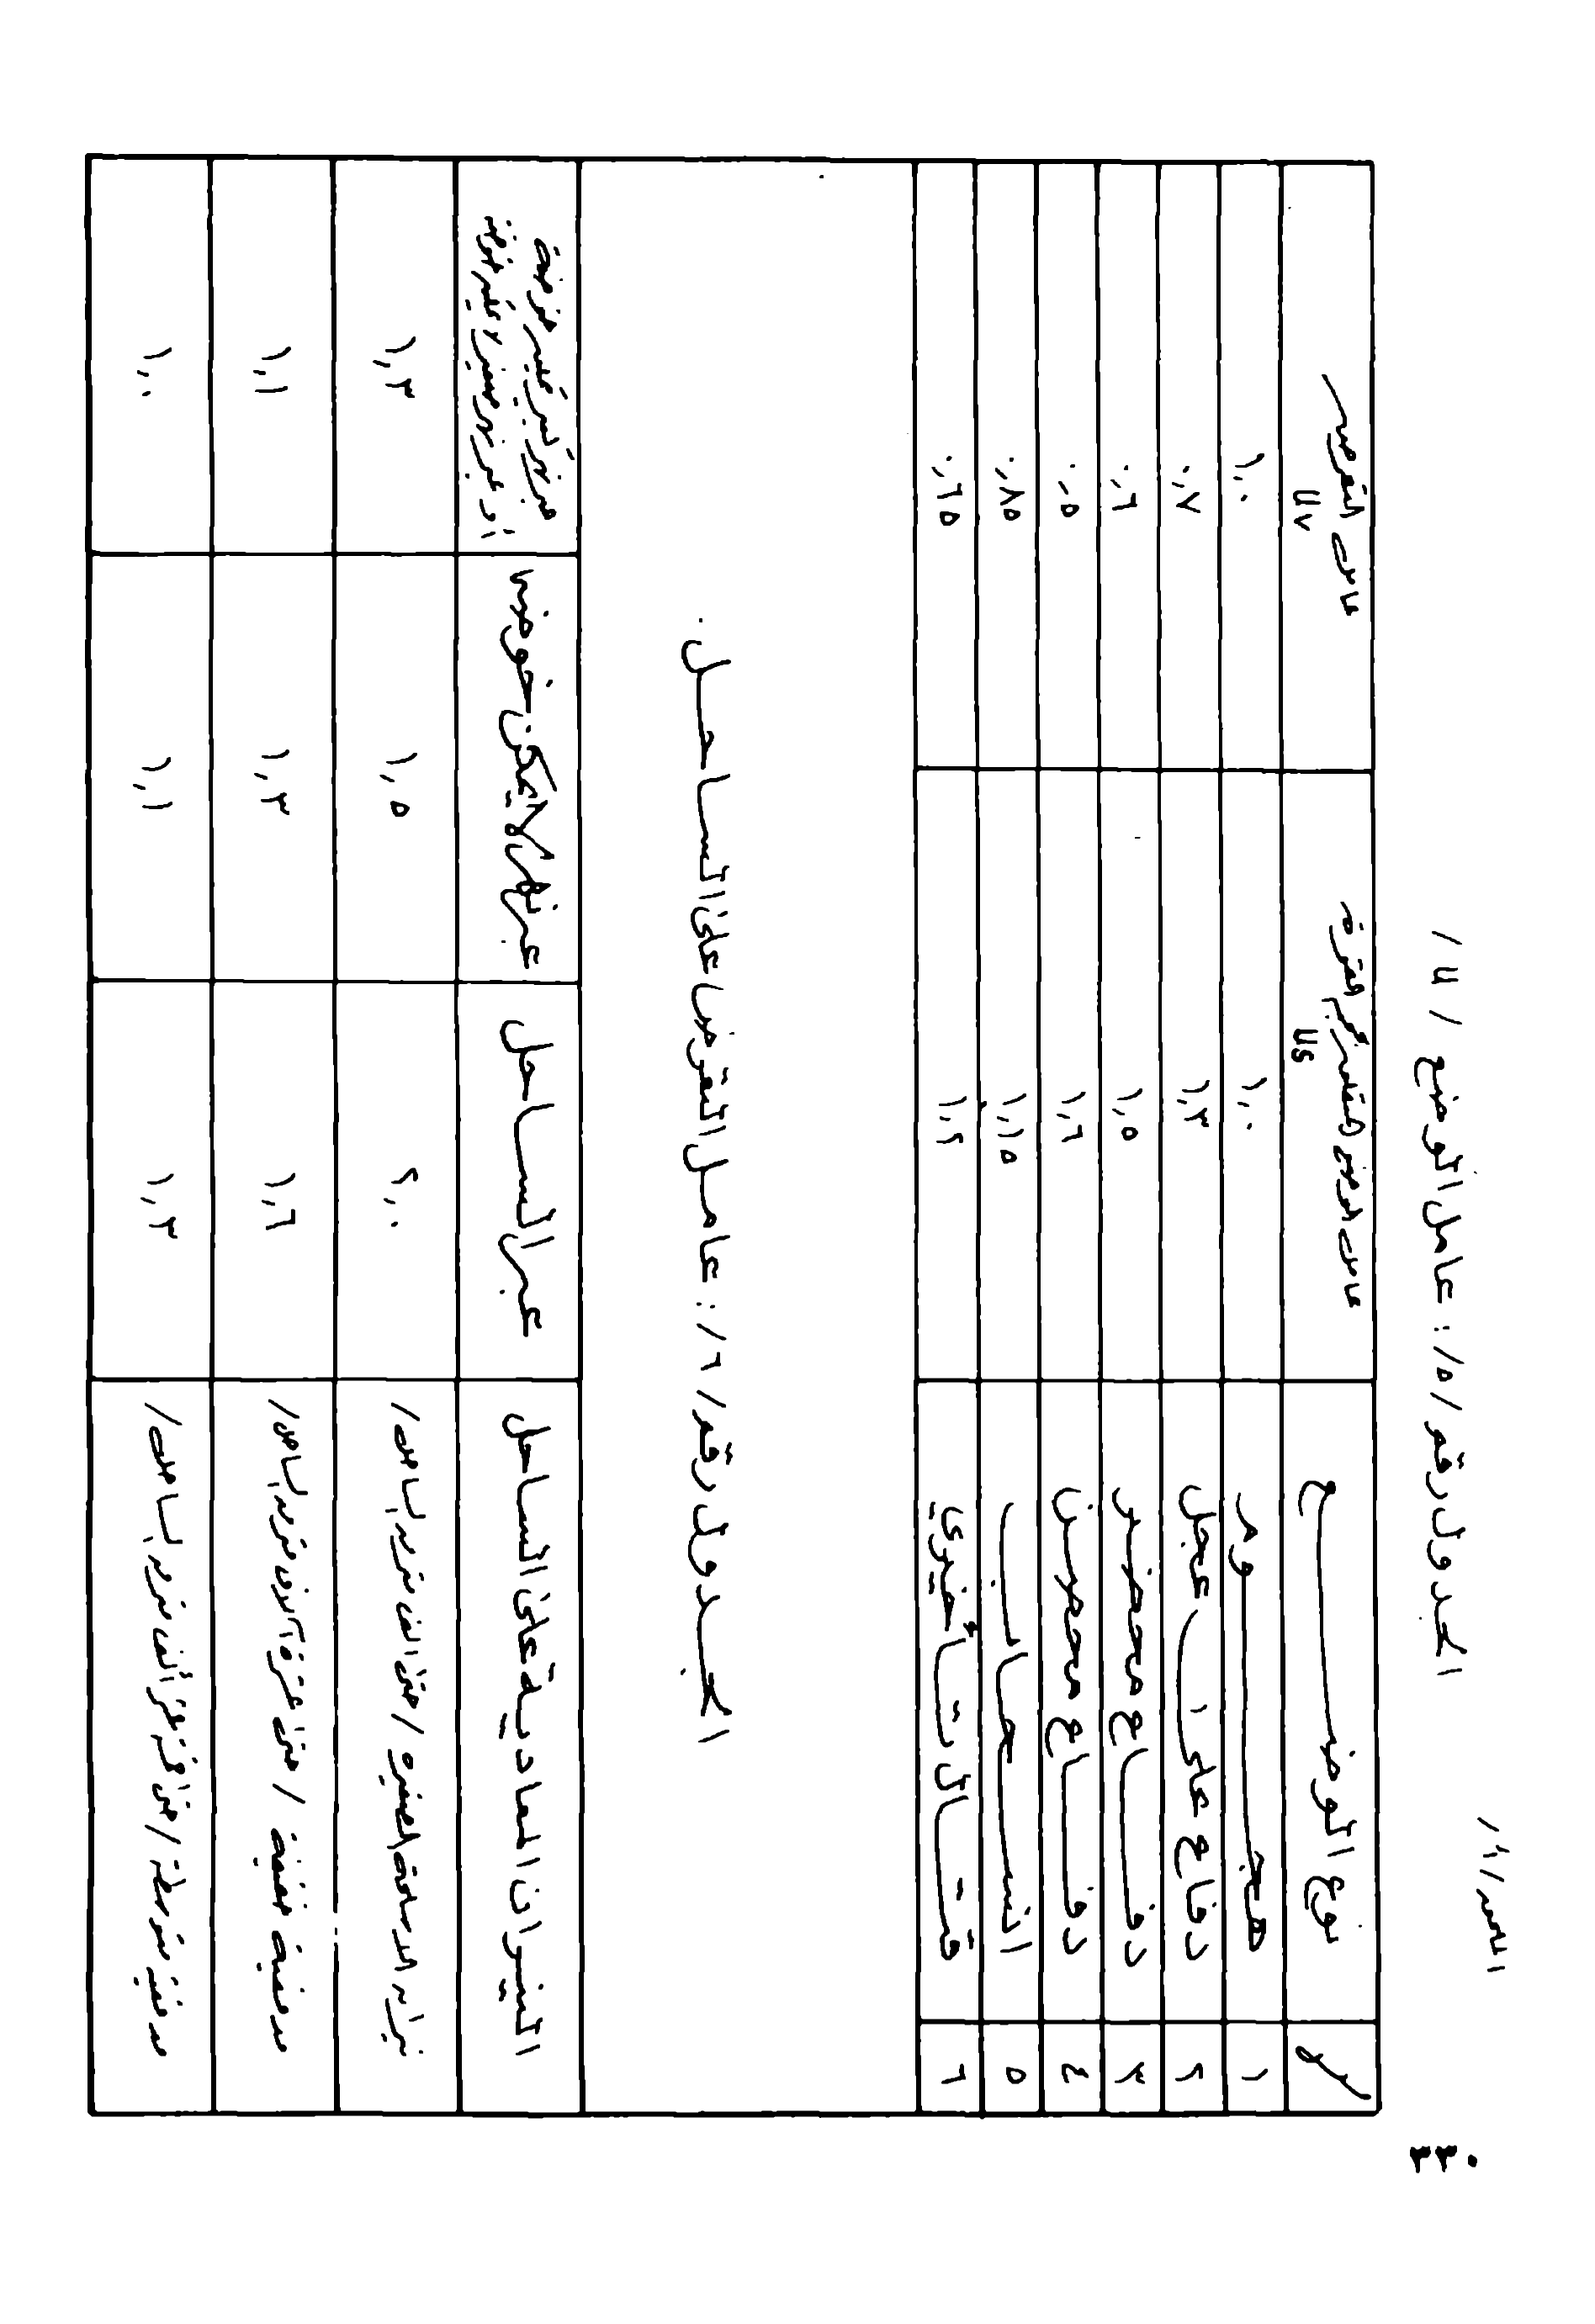 ٣٣٠
الجدول رقم /٥/: عامل الوضع / U /
نوع الوضع عامل التعرض Uv
Us
١ هجوم ١,٠ ١,٠
٢ دفاع على عجل ١,٣ ٠,٧
٣ دفاع محضر ١,٥ ٠,٦
٤ دفاع محصن ١,٦ ٠,٥
٥ انسحاب ١,١٥ ٠,٨٥
٦ قتال تأخيري ١,٢ ٠,٦٥
الجدول رقم /٦/: عامل التعرض على الساحل.
النيران المعادية على الساحل عبر الساحل عبر نهر لا يمكن خوضه
عبر نهر كبير يمكن خوضه
أو عبر نهر صغير لا يمكن خوضه
نيران الأسلحة الصغيرة / حتى ألف متر من الساحل / ٢,٠ ١,٥ ١,٣
مدفعية خفيفة / حتى عشرة آلاف متر من الساحل / ١,٦ ١,٣ ١,١
مدفعية متوسطة / حتى خمسة عشر ألف متر من الساحل / ١,٣ ١,١ ١,٠